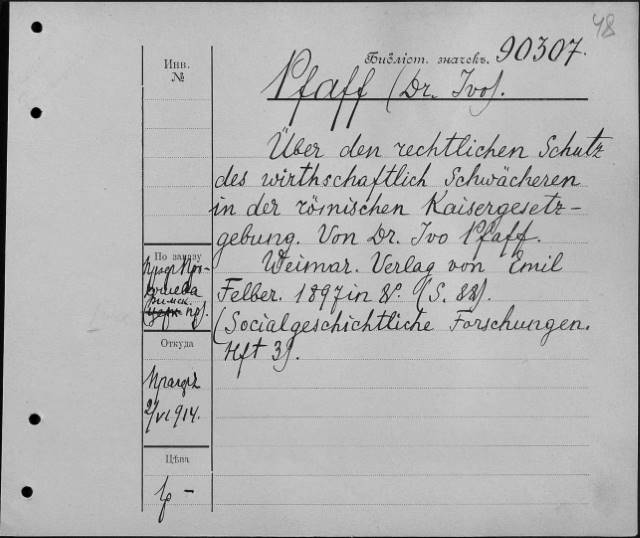 48
Инв.
№
Библіот. значекъ. 90307.
Pfaff (Dr. Ivo).
Über den rechtlichen Schutz
des wirthschaftlich Schwächeren
in der römischen Kaisergesetz-
gebung. Von Dr. Ivo Pfaff.
Weimar. Verlag von Emil
Felber. 1897 in 8º. (S. 88).
(Socialgeschichtliche Forschungen.
Hft 3).
По заказу
Откуда
2/VI 1914.
Цѣна